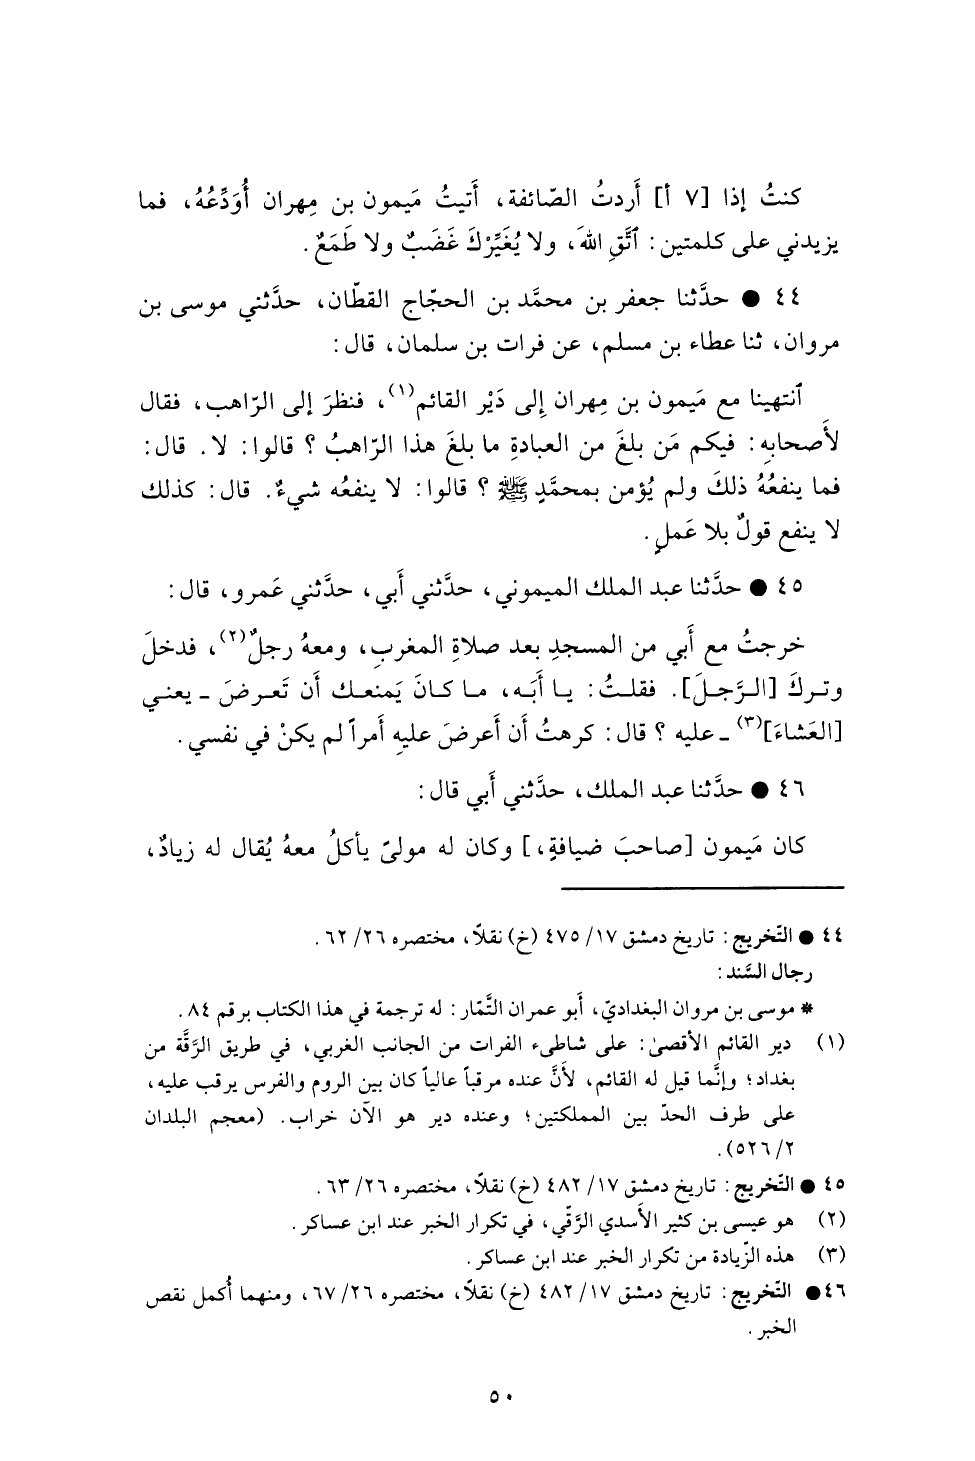 كنتُ إذا [٧ أ] أَردتُ الصّائفة، أَتيتُ مَيمون بن مِهران أُوَدِّعُهُ، فما
يزيدني على كلمتين: ٱتَّقِ اللهَ، ولا يُغَيِّرْكَ غَضَبٌ ولا طَمَعٌ.
٤٤ ● حدَّثنا جعفر بن محمَّد بن الحجّاج القطّان، حدَّثني موسى بن
مروان، ثنا عطاء بن مسلم، عن فرات بن سلمان، قال:
ٱنتهينا مع مَيمون بن مِهران إِلى دَيْر القائم(١)، فنظرَ إلى الرّاهب، فقال
لأَصحابِه: فيكم مَن بلغَ من العبادةِ ما بلغَ هذا الرّاهبُ؟ قالوا: لا. قال:
فما ينفعُهُ ذلكَ ولم يُؤمن بمحمَّدٍ ﷺ؟ قالوا: لا ينفعُه شيءٌ. قال: كذلك
لا ينفع قولٌ بلا عَملٍ.
٤٥ ● حدَّثنا عبد الملك الميموني، حدَّثني أَبي، حدَّثني عَمرو، قال:
خرجتُ مع أَبي من المسجدِ بعد صلاةِ المغربِ، ومعهُ رجلٌ(٢)، فدخلَ
وتركَ [الرَّجلَ]. فقلتُ: يا أَبَه، ما كانَ يَمنعك أن تَعرضَ ـ يعني
[العَشاءَ](٣) ـ عليه؟ قال: كرهتُ أن أَعرضَ عليهِ أَمراً لم يكنْ في نفسي.
٤٦ ● حدَّثنا عبد الملك، حدَّثني أَبي قال:
كان مَيمون [صاحبَ ضيافةٍ،] وكان له مولىً يأكلُ معهُ يُقال له زيادٌ،
٤٤ ● التّخريج: تاريخ دمشق ١٧/ ٤٧٥ (خ) نقلاً، مختصره ٢٦/ ٦٢.
رجال السَّند:
* موسى بن مروان البغداديّ، أَبو عمران التَّمّار: له ترجمة في هذا الكتاب برقم ٨٤.
(١) دير القائم الأقصىٰ: على شاطىء الفرات من الجانب الغربي، في طريق الرَّقَّة من
بغداد؛ وإنَّما قيل له القائم، لأَنَّ عنده مرقباً عالياً كان بين الروم والفرس يرقب عليه،
على طرف الحدّ بين المملكتين؛ وعنده دير هو الآن خراب. (معجم البلدان
٢/ ٥٢٦).
٤٥ ● التّخريج: تاريخ دمشق ١٧/ ٤٨٢ (خ) نقلاً، مختصره ٢٦/ ٦٣.
(٢) هو عيسى بن كثير الأَسدي الرَّقّي، في تكرار الخبر عند ابن عساكر.
(٣) هذه الزّيادة من تكرار الخبر عند ابن عساكر.
٤٦● التّخريج: تاريخ دمشق ١٧/ ٤٨٢ (خ) نقلاً، مختصره ٢٦/ ٦٧، ومنهما أُكمل نقص
الخبر.
٥٠